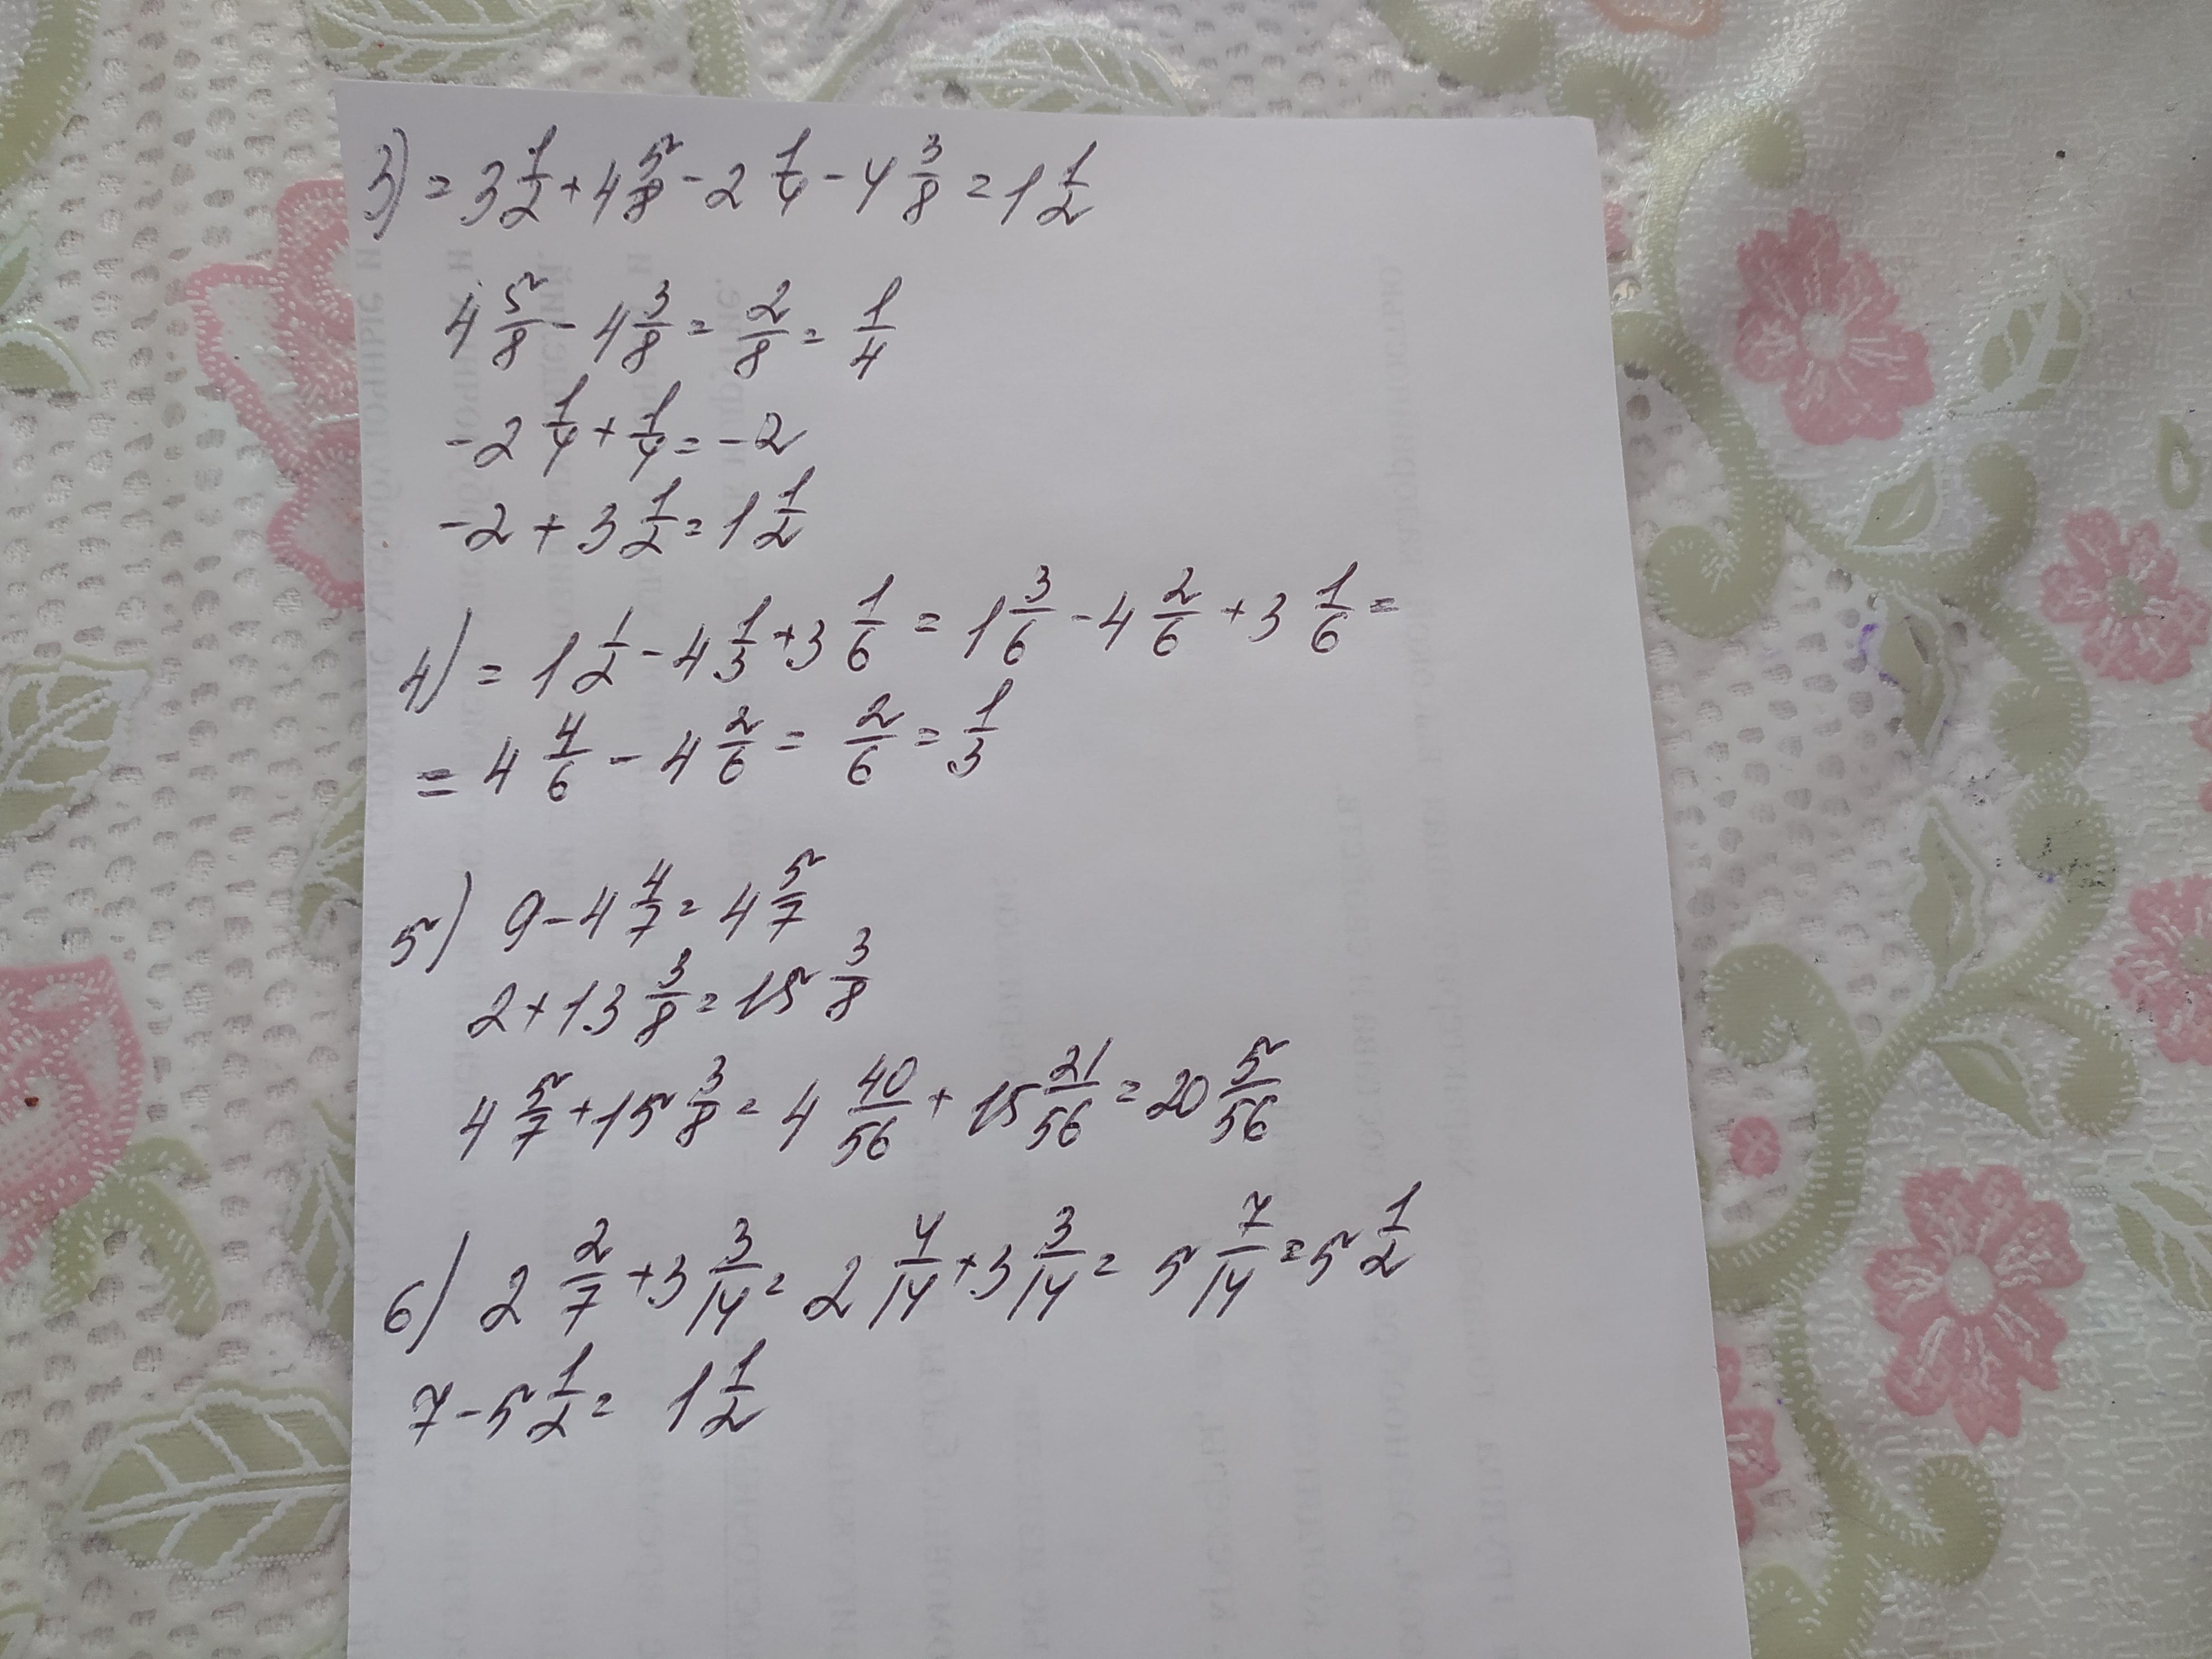 3) = 3 1/2 + 4 5/8 - 2 1/4 - 4 3/8 = 1 1/2
4 5/8 - 4 3/8 = 2/8 = 1/4
-2 1/4 + 1/4 = -2
-2 + 3 1/2 = 1 1/2
4) = 1 1/2 - 4 1/3 + 3 1/6 = 1 3/6 - 4 2/6 + 3 1/6 =
= 4 4/6 - 4 2/6 = 2/6 = 1/3
5) 9 - 4 4/7 = 4 5/7
2 + 13 3/8 = 15 3/8
4 5/7 + 15 3/8 = 4 40/56 + 15 21/56 = 20 5/56
6) 2 2/7 + 3 3/14 = 2 4/14 + 3 3/14 = 5 7/14 = 5 1/2
7 - 5 1/2 = 1 1/2